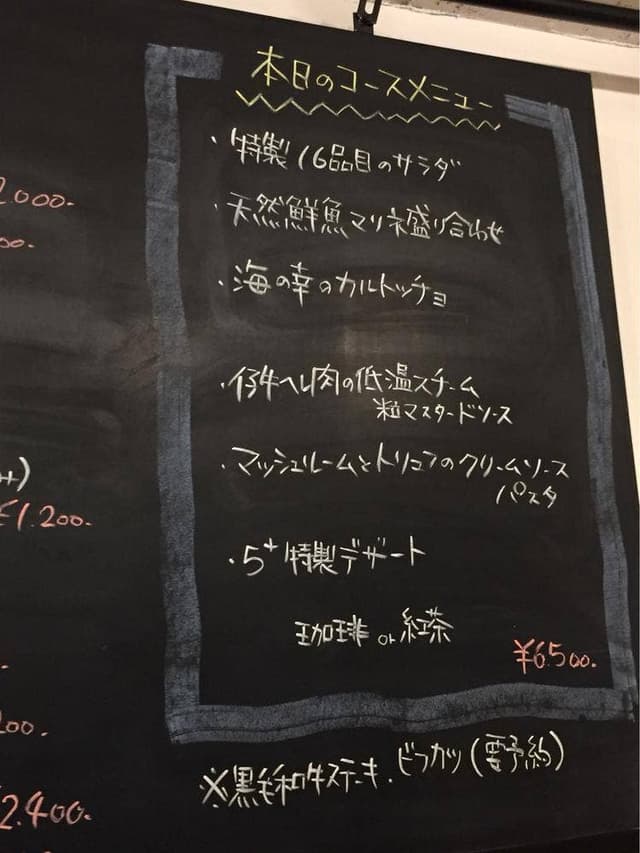 本日のコースメニュー
・特製16品目のサラダ
・天然鮮魚マリネ盛り合わせ
・海の幸のカルトッチョ
・仔牛ヘレ肉の低温スチーム
粒マスタードソース
・マッシュルームとトリュフのクリームソース
パスタ
・5+特製デザート
珈琲 or 紅茶
¥6500.
※黒毛和牛ステーキ.ビフカツ(要予約)
2000.
00.
¥1.200.
200.
2.400.